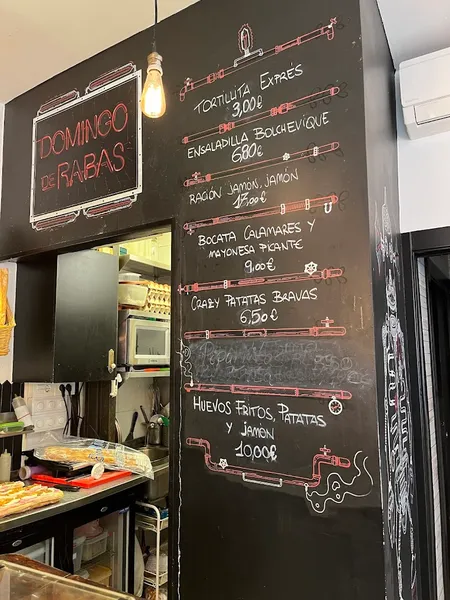 DOMINGO
DE RABAS
TORTILLITA EXPRÉS
3,00€
ENSALADILLA BOLCHEVIQUE
6,80€
RACIÓN JAMÓN, JAMÓN
17,00€
BOCATA CALAMARES Y
MAYONESA PICANTE
9,00€
CRAZY PATATAS BRAVAS
6,50€
HUEVOS FRITOS, PATATAS
Y JAMÓN
10,00€